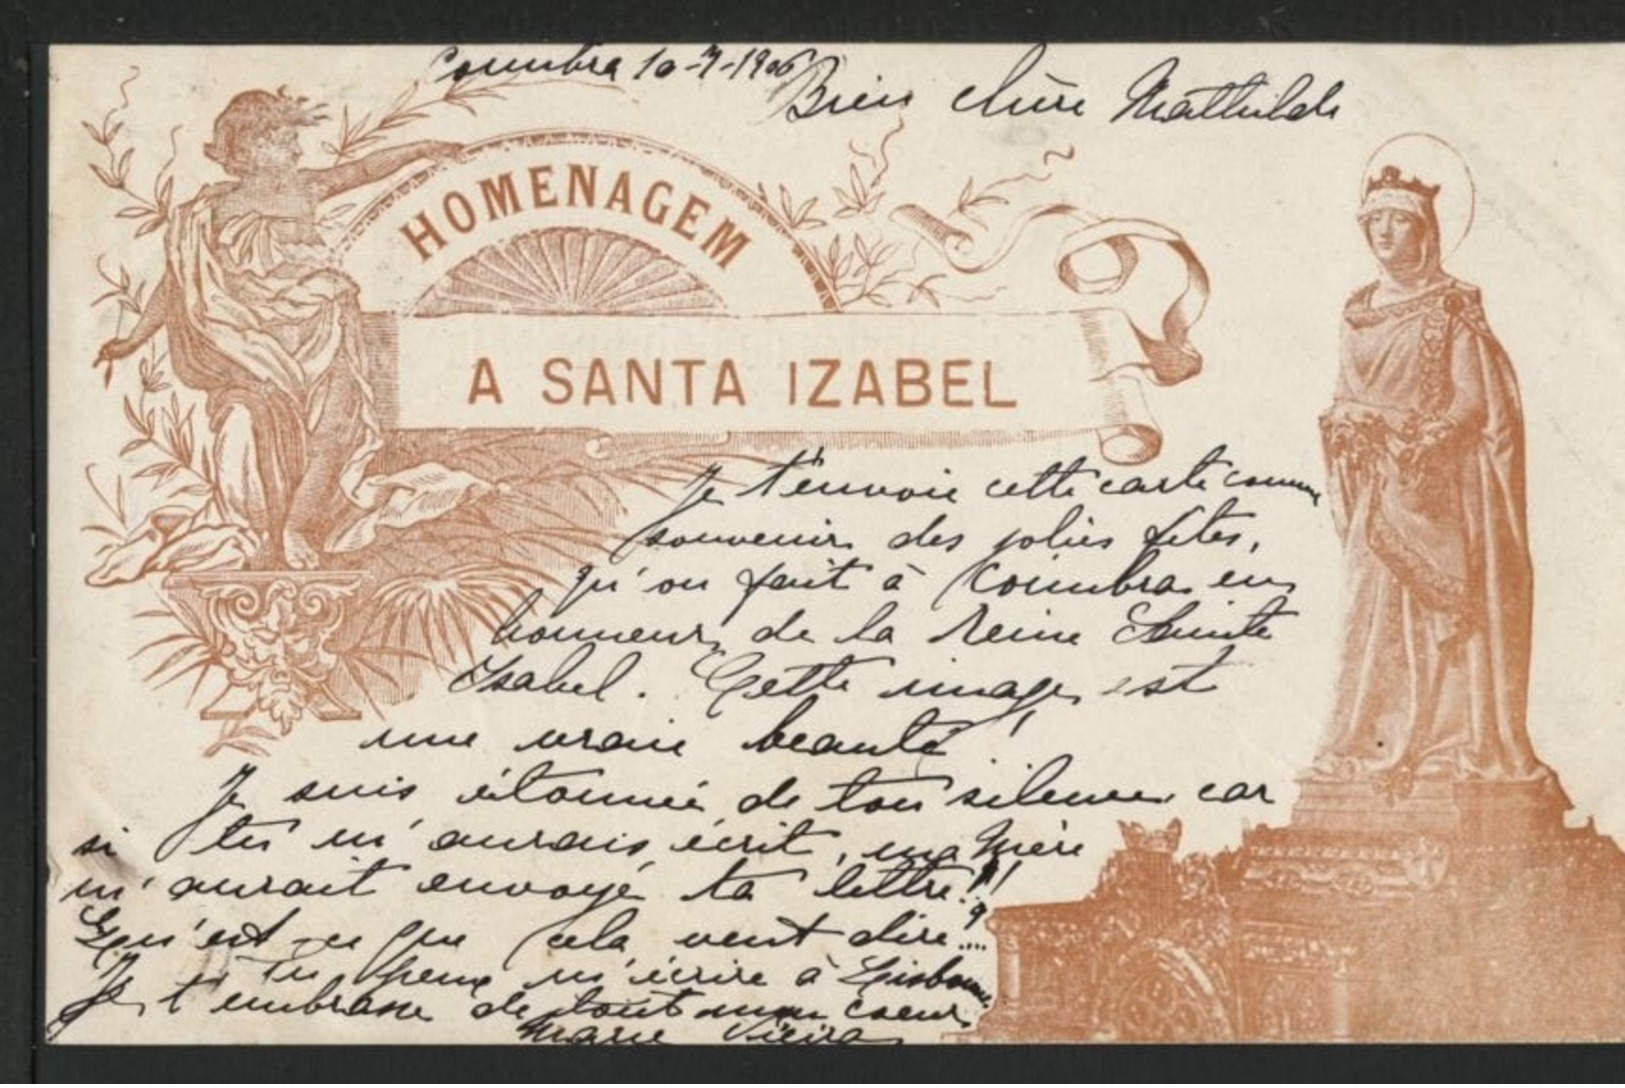 Coimbra 10-7-1906
Bien chère Mathilde
HOMENAGEM
A SANTA IZABEL
Je t'envoie cette carte comme
souvenir des jolies fêtes,
qu'on fait à Coimbra en
honneur de la Reine Sainte
Isabel. Cette image est
une vraie beauté!
Je suis étonnée de ton silence car
si tu m'aurais écrit, ma Mère
m'aurait envoyé ta lettre!!!
Qu'est ce que cela veut dire?...
Tu peux m'écrire à Lisbonne.
Je t'embrasse de tout mon coeur
Marie Vieira